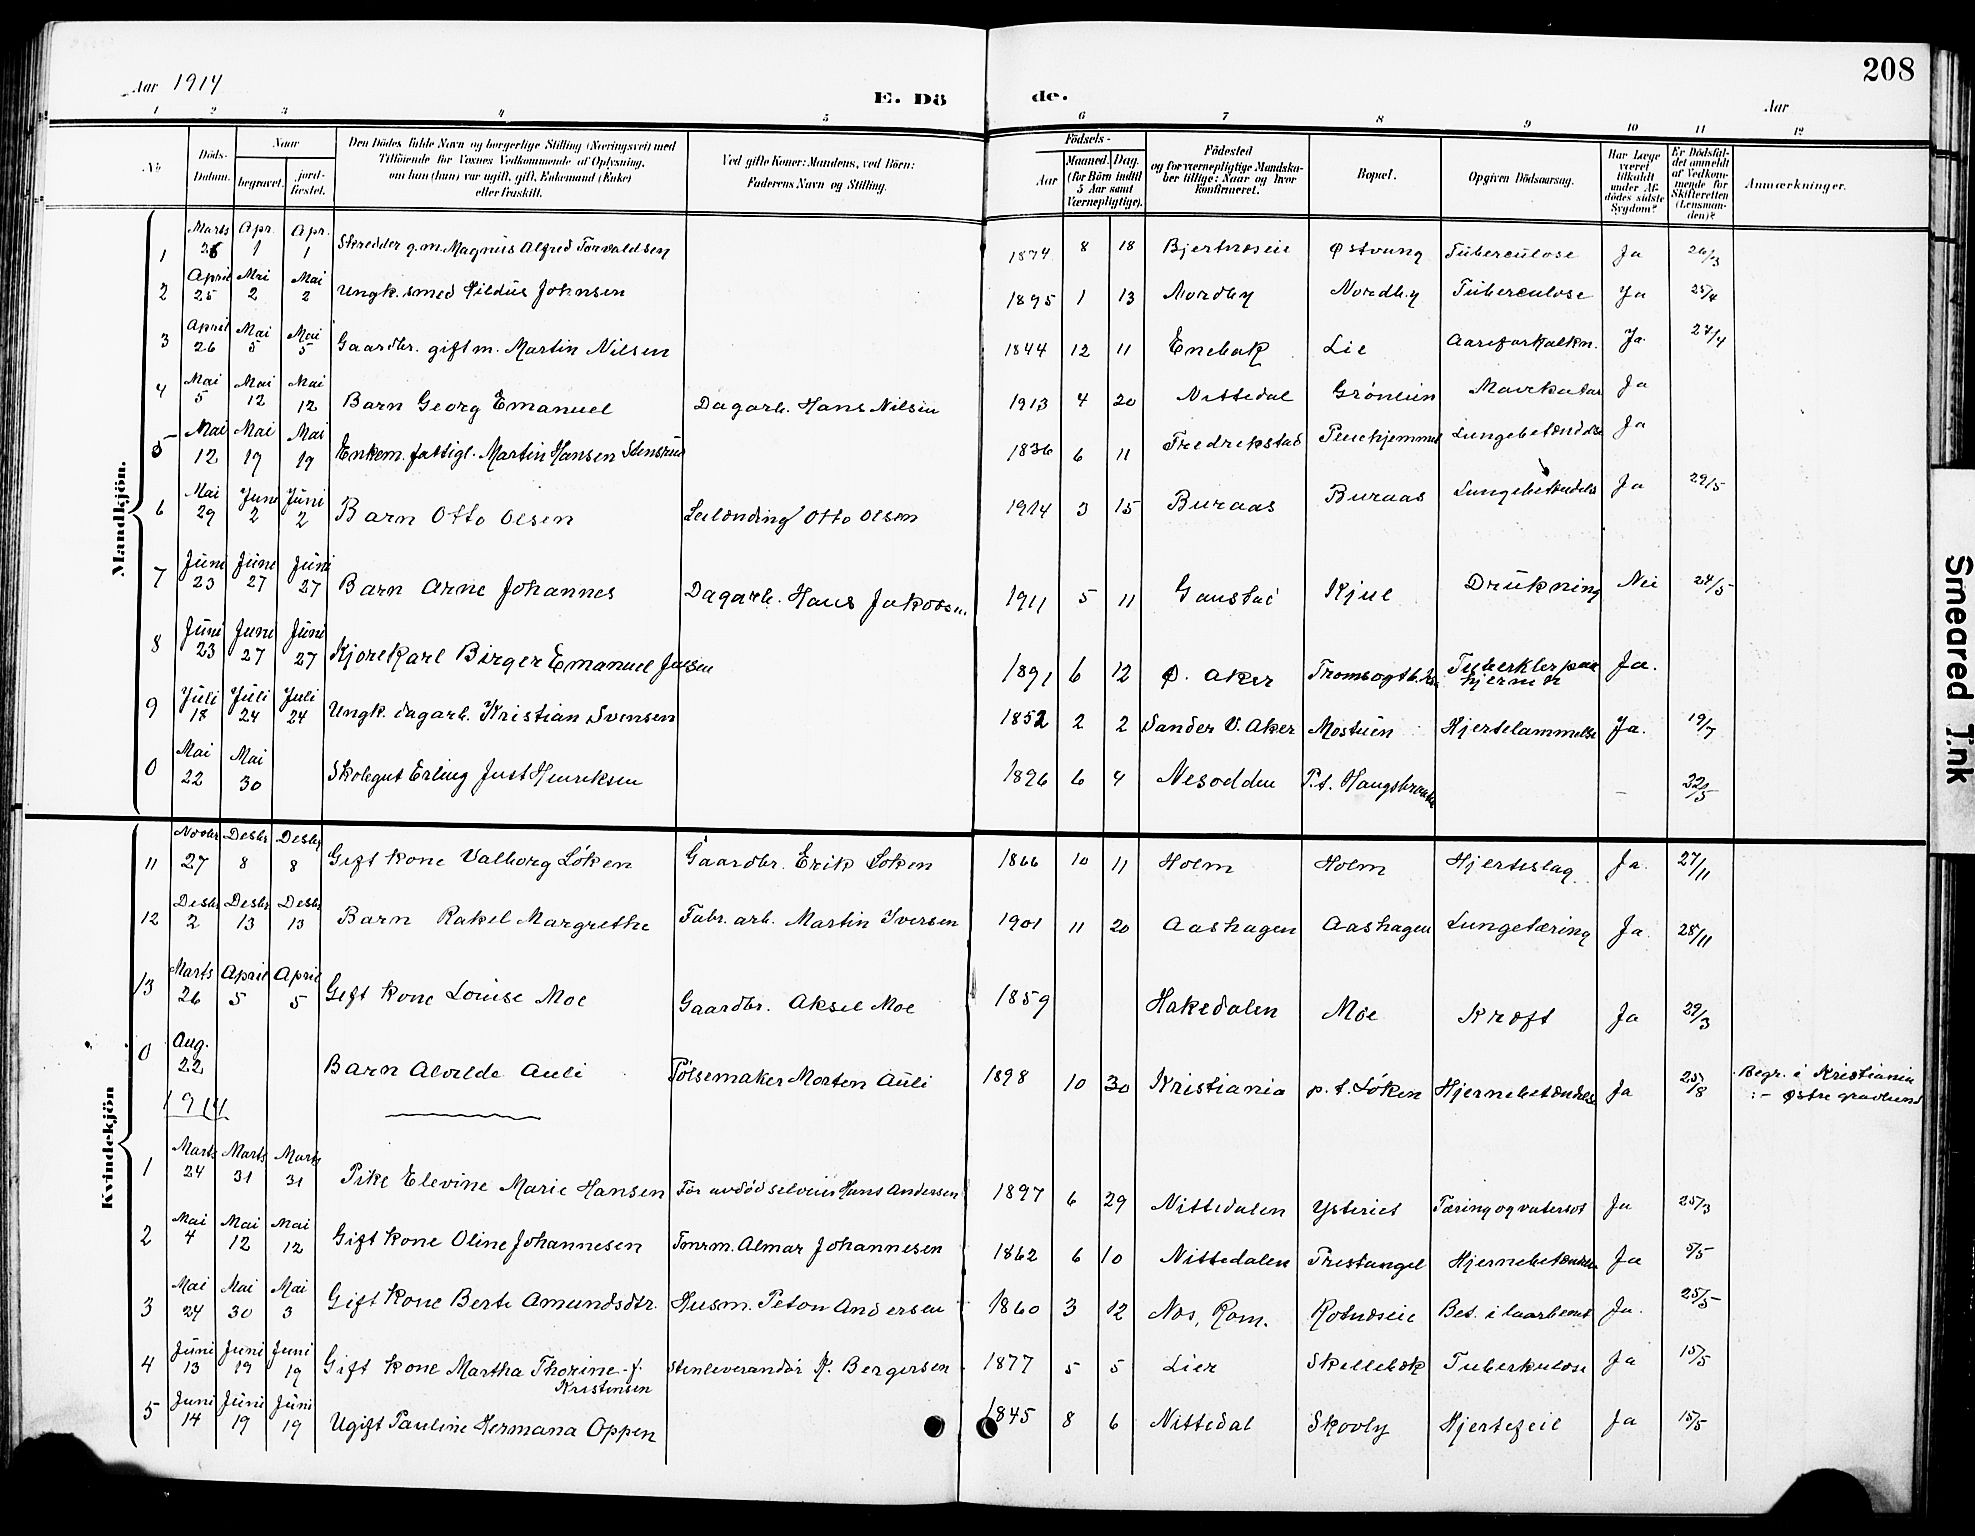 208
Aar 1914
E. Dö
de.
Aar
1 2 3 4 5 6 7 8 9 10 11 12
No
Döds-Datum.
Naar
begravet.
jord-fæstet.
Den Dødes fulde Navn og borgerlige Stilling (Næringsvei) med
Tilføiende for Voxnes Vedkommende af Oplysning,
om han (hun) var ugift, gift, Enkemand (Enke)
eller fraskilt.
Ved gifte Koner: Mandens, ved Börn:
Faderens Navn og Stilling.
Födsels-
Aar
Maaned. Dag.
(for Börn indtil
5 Aar samt
Værnepligtige).
Födested
og for værnepligtige Mandska-
ber tillige: Naar og hvor
konfirmeret.
Bopæl.
Opgiven Dödsaarsag.
Har Læge
været
tilkaldt
under Af-
dödes sidste
Sygdom?
Er Dödsfal-
det anmeldt
af Vedkom-
mende for
Skifteretten
(Lensman-
den)?
Anmærkninger.
Mandkjön.
1 Marts 26 Apr. 1 Apr. 1 Skrædder g.m. Magnus Alfred Torvaldsen 1874 8 18 Bjertnæseie Østvang Tuberculose Ja 26/3
2 April 25 Mai 2 Mai 2 Ungk. smed Hildus Johnsen 1895 1 13 Nordby Nordby Tuberculose Ja 25/4
3 April 26 Mai 5 Mai 5 Gaardbr. gift m. Martin Nilsen 1844 12 11 Enebak Lie Aareforkalkn. Ja 27/4
4 Mai 5 Mai 12 Mai 12 Barn Georg Emanuel Dagarb. Hans Nilsen 1913 4 20 Nittedal Grönlien Mavekatar Ja
5 Mai 12 Mai 19 Mai 19 Enkem. fattigl. Martin Hansen Stensrud 1836 6 11 Fredrikstad Pleiehjemmet Lungebetændelse Ja
6 Mai 29 Juni 2 Juni 2 Barn Otto Olsen Leilending Otto Olsen 1914 3 15 Buraas Buraas Lungebetændelse Ja 29/5
7 Juni 23 Juni 27 Juni 27 Barn Arne Johannes Dagarb. Hans Jakobsen 1911 5 11 Gaustad Kjul Drukning Nei 24/5
8 Juni 23 Juni 27 Juni 27 Kjørekarl Birger Emanuel Jensen 1891 6 12 Ø. Aker Tuberkler paa hjernen Ja.
9 Juli 18 Juli 24 Juli 24 Ungk. dagarb. Kristian Svensen 1852 2 2 Sander V. Aker Mostuen Hjertelammelse Ja. 19/7
0 Mai 22 Mai 30 Skolegut Erling Just Henriksen 1896 6 4 Nesodden P.t. Haugsbraaten – 22/5
Kvindekjön
11 Novbr 27 Desbr 8 Desbr 8 Gift kone Valborg Løken Gaardbr. Erik Løken 1866 10 11 Holm Holm Hjerteslag Ja. 27/11
12 Desbr 2 Desbr 13 Desbr 13 Barn Rakel Margrethe Fabr. arb. Martin Iversen 1901 11 20 Aashagen Aashagen Lungetæring Ja 28/11
13 Marts 26 April 5 April 5 Gift kone Louise Moe Gaardbr. Aksel Moe 1859 Hakedalen Moe Kræft Ja 29/3
0 Aug. 22 Barn Alvilde Auli Pølsemaker Morten Auli 1898 10 30 Kristiania p.t. Løken Hjernebetændelse Ja 25/8 Begr. i Kristiania
:- Østre gravlund
1914
1 Marts 24 Marts 31 Marts 31 Pike Elevine Marie Hansen Før avdød selveier Hans Andersen 1897 6 29 Nittedalen Ysteriet Tæring og vatersot Ja 25/3
2 Mai 4 Mai 12 Mai 12 Gift kone Oline Johannesen Tmrm. Almar Johannesen 1862 6 10 Nittedalen Trestangel Hjernebetændelse Ja 5/5
3 Mai 24 Mai 30 Mai 3 Gift kone Berte Amundsdtr. Husm. Peton Andersen 1860 3 12 Nes, Rom. Rotnæseie Bet. i laarbenet Ja. 25/5
4 Juni 13 Juni 19 Juni 19 Gift kone Martha Thorine f. Kristensen Stenleverandør K. Bergersen 1877 5 5 Lier Skillebæk Tuberkulose Ja 15/5
5 Juni 14 Juni 19 Juni 19 Ugift Pauline Hermana Oppen 1845 8 6 Nittedal Skovly Hjertefeil Ja 15/5
Smeared Ink